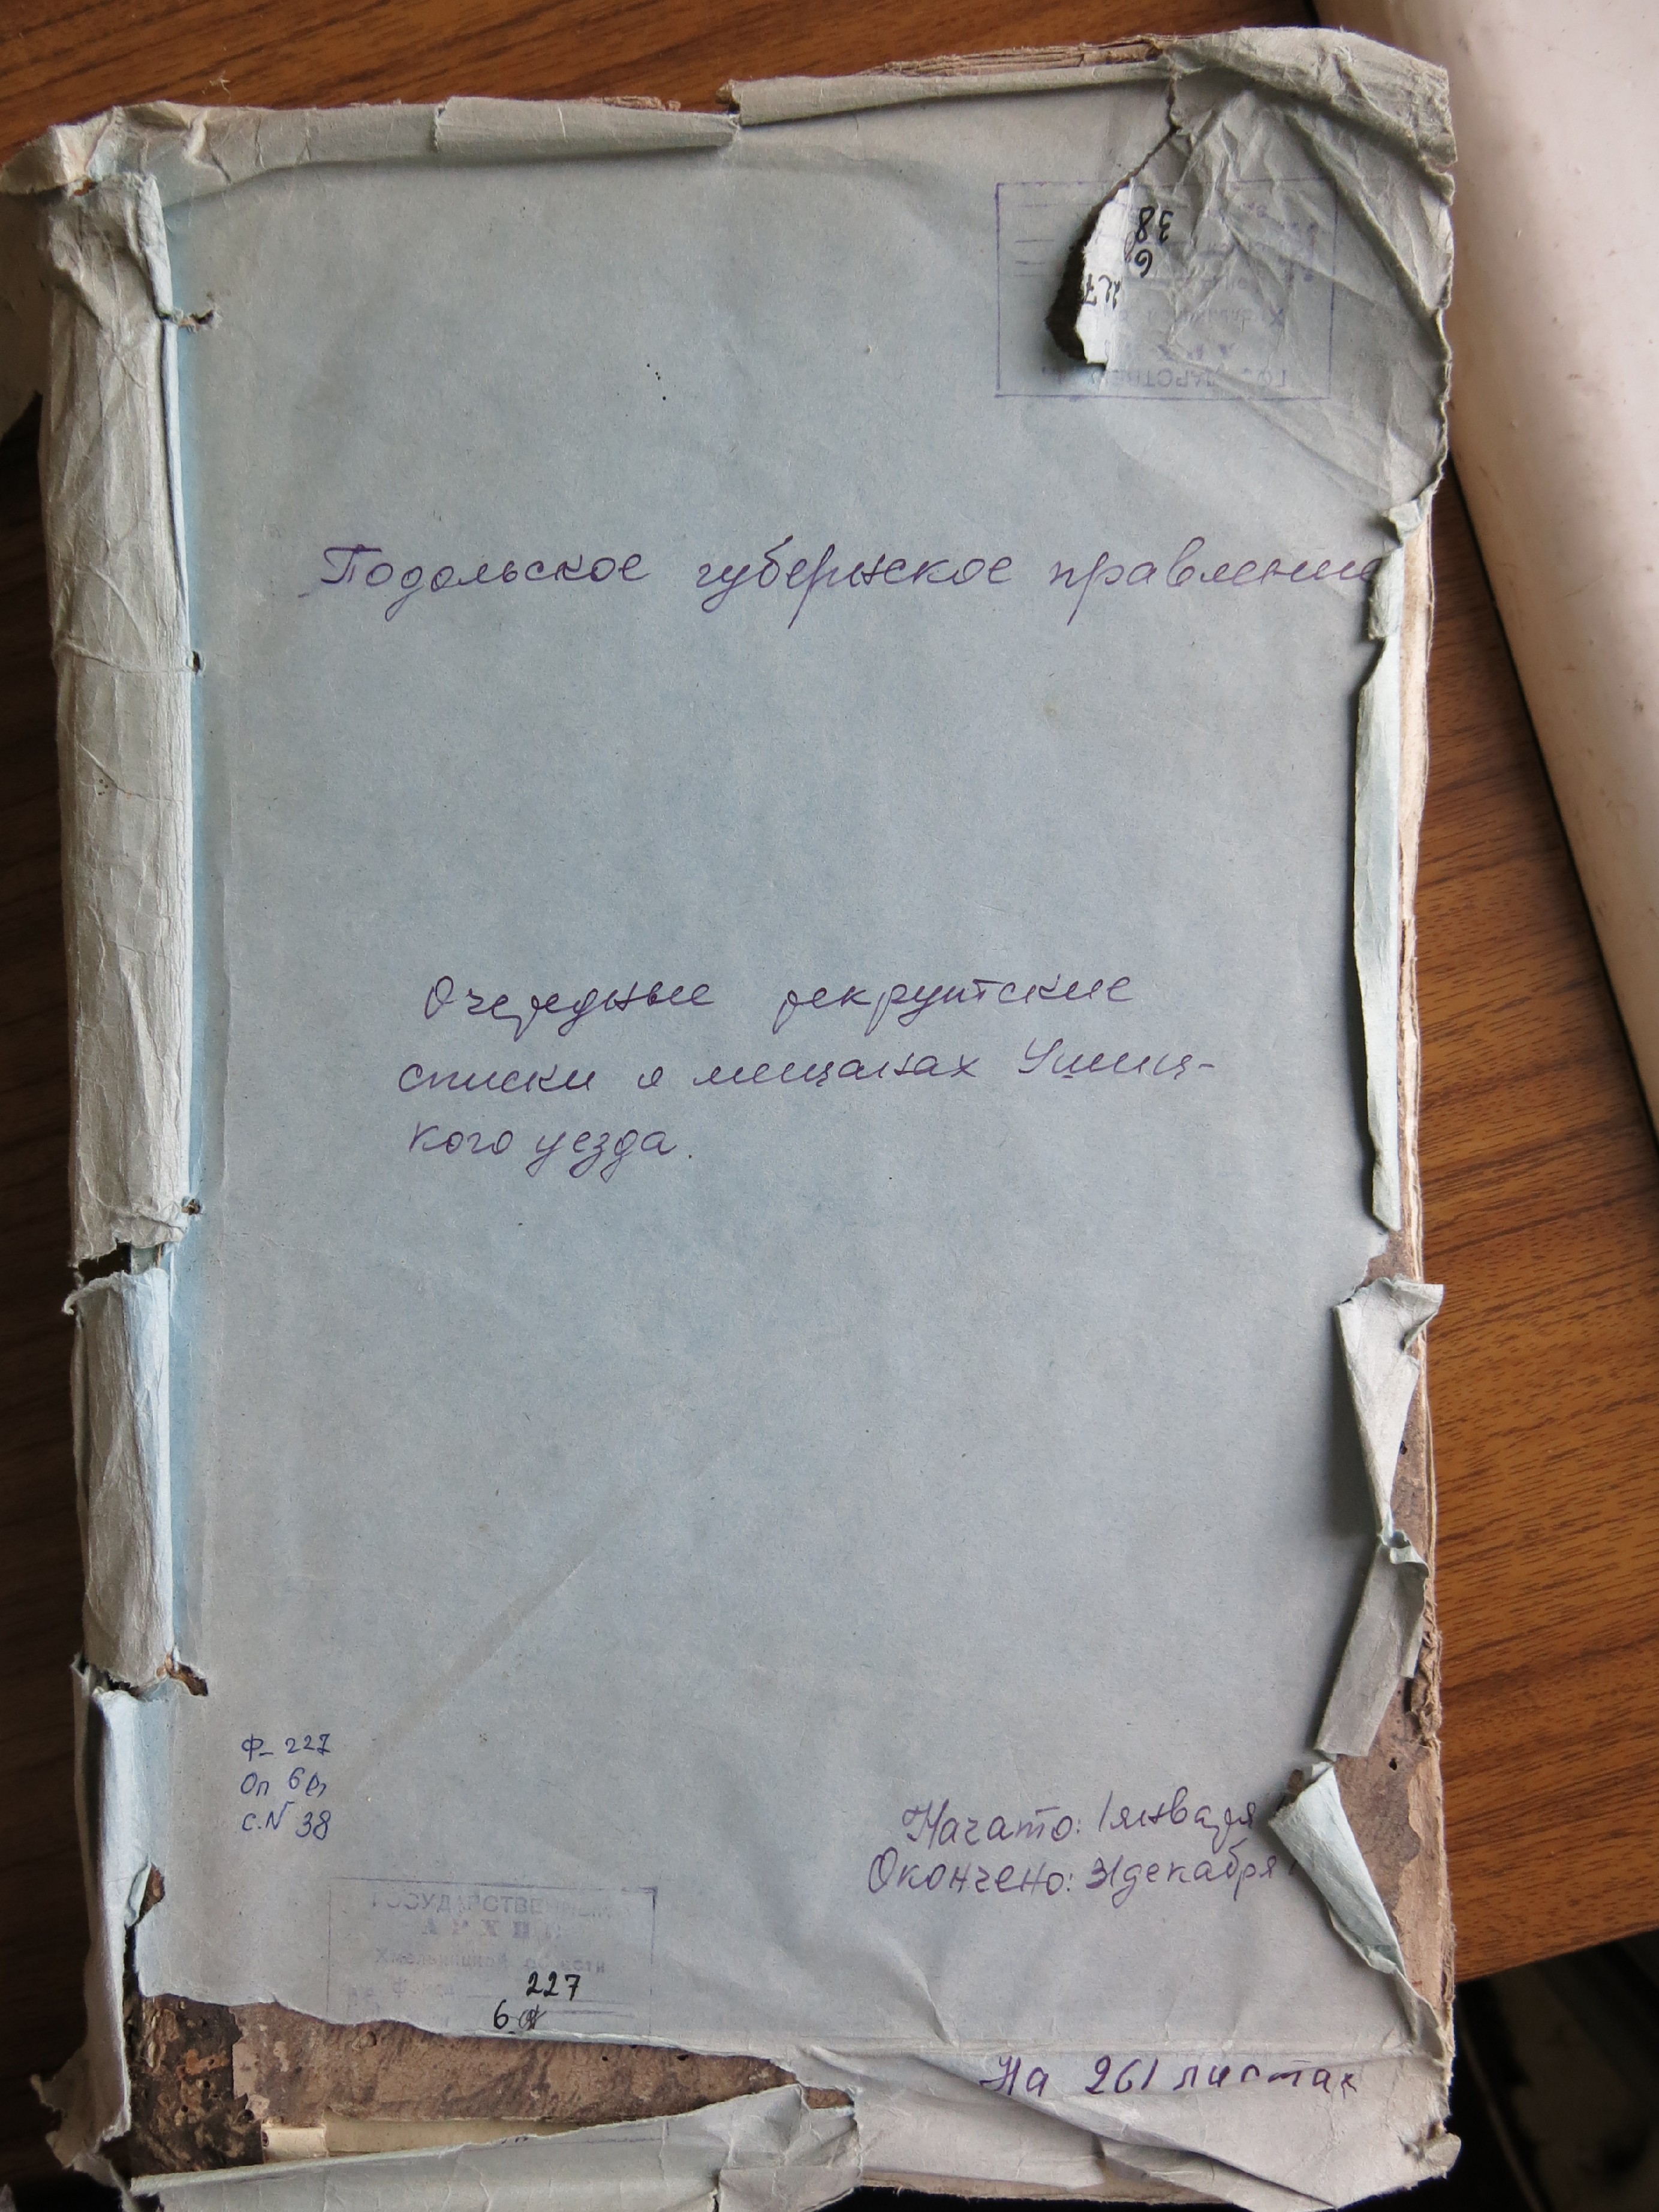 38
6
227
Подольское губернское правление
Очередные рекрутские
списки о мещанах Ушиц-
кого уезда.
Ф-227
Оп 6
С.N 38
Начато: 1 января
Окончено: 31 декабря
ГОСУДАРСТВЕННЫЙ
АРХИВ
Хмельницкой области
227
6
На 261 листах